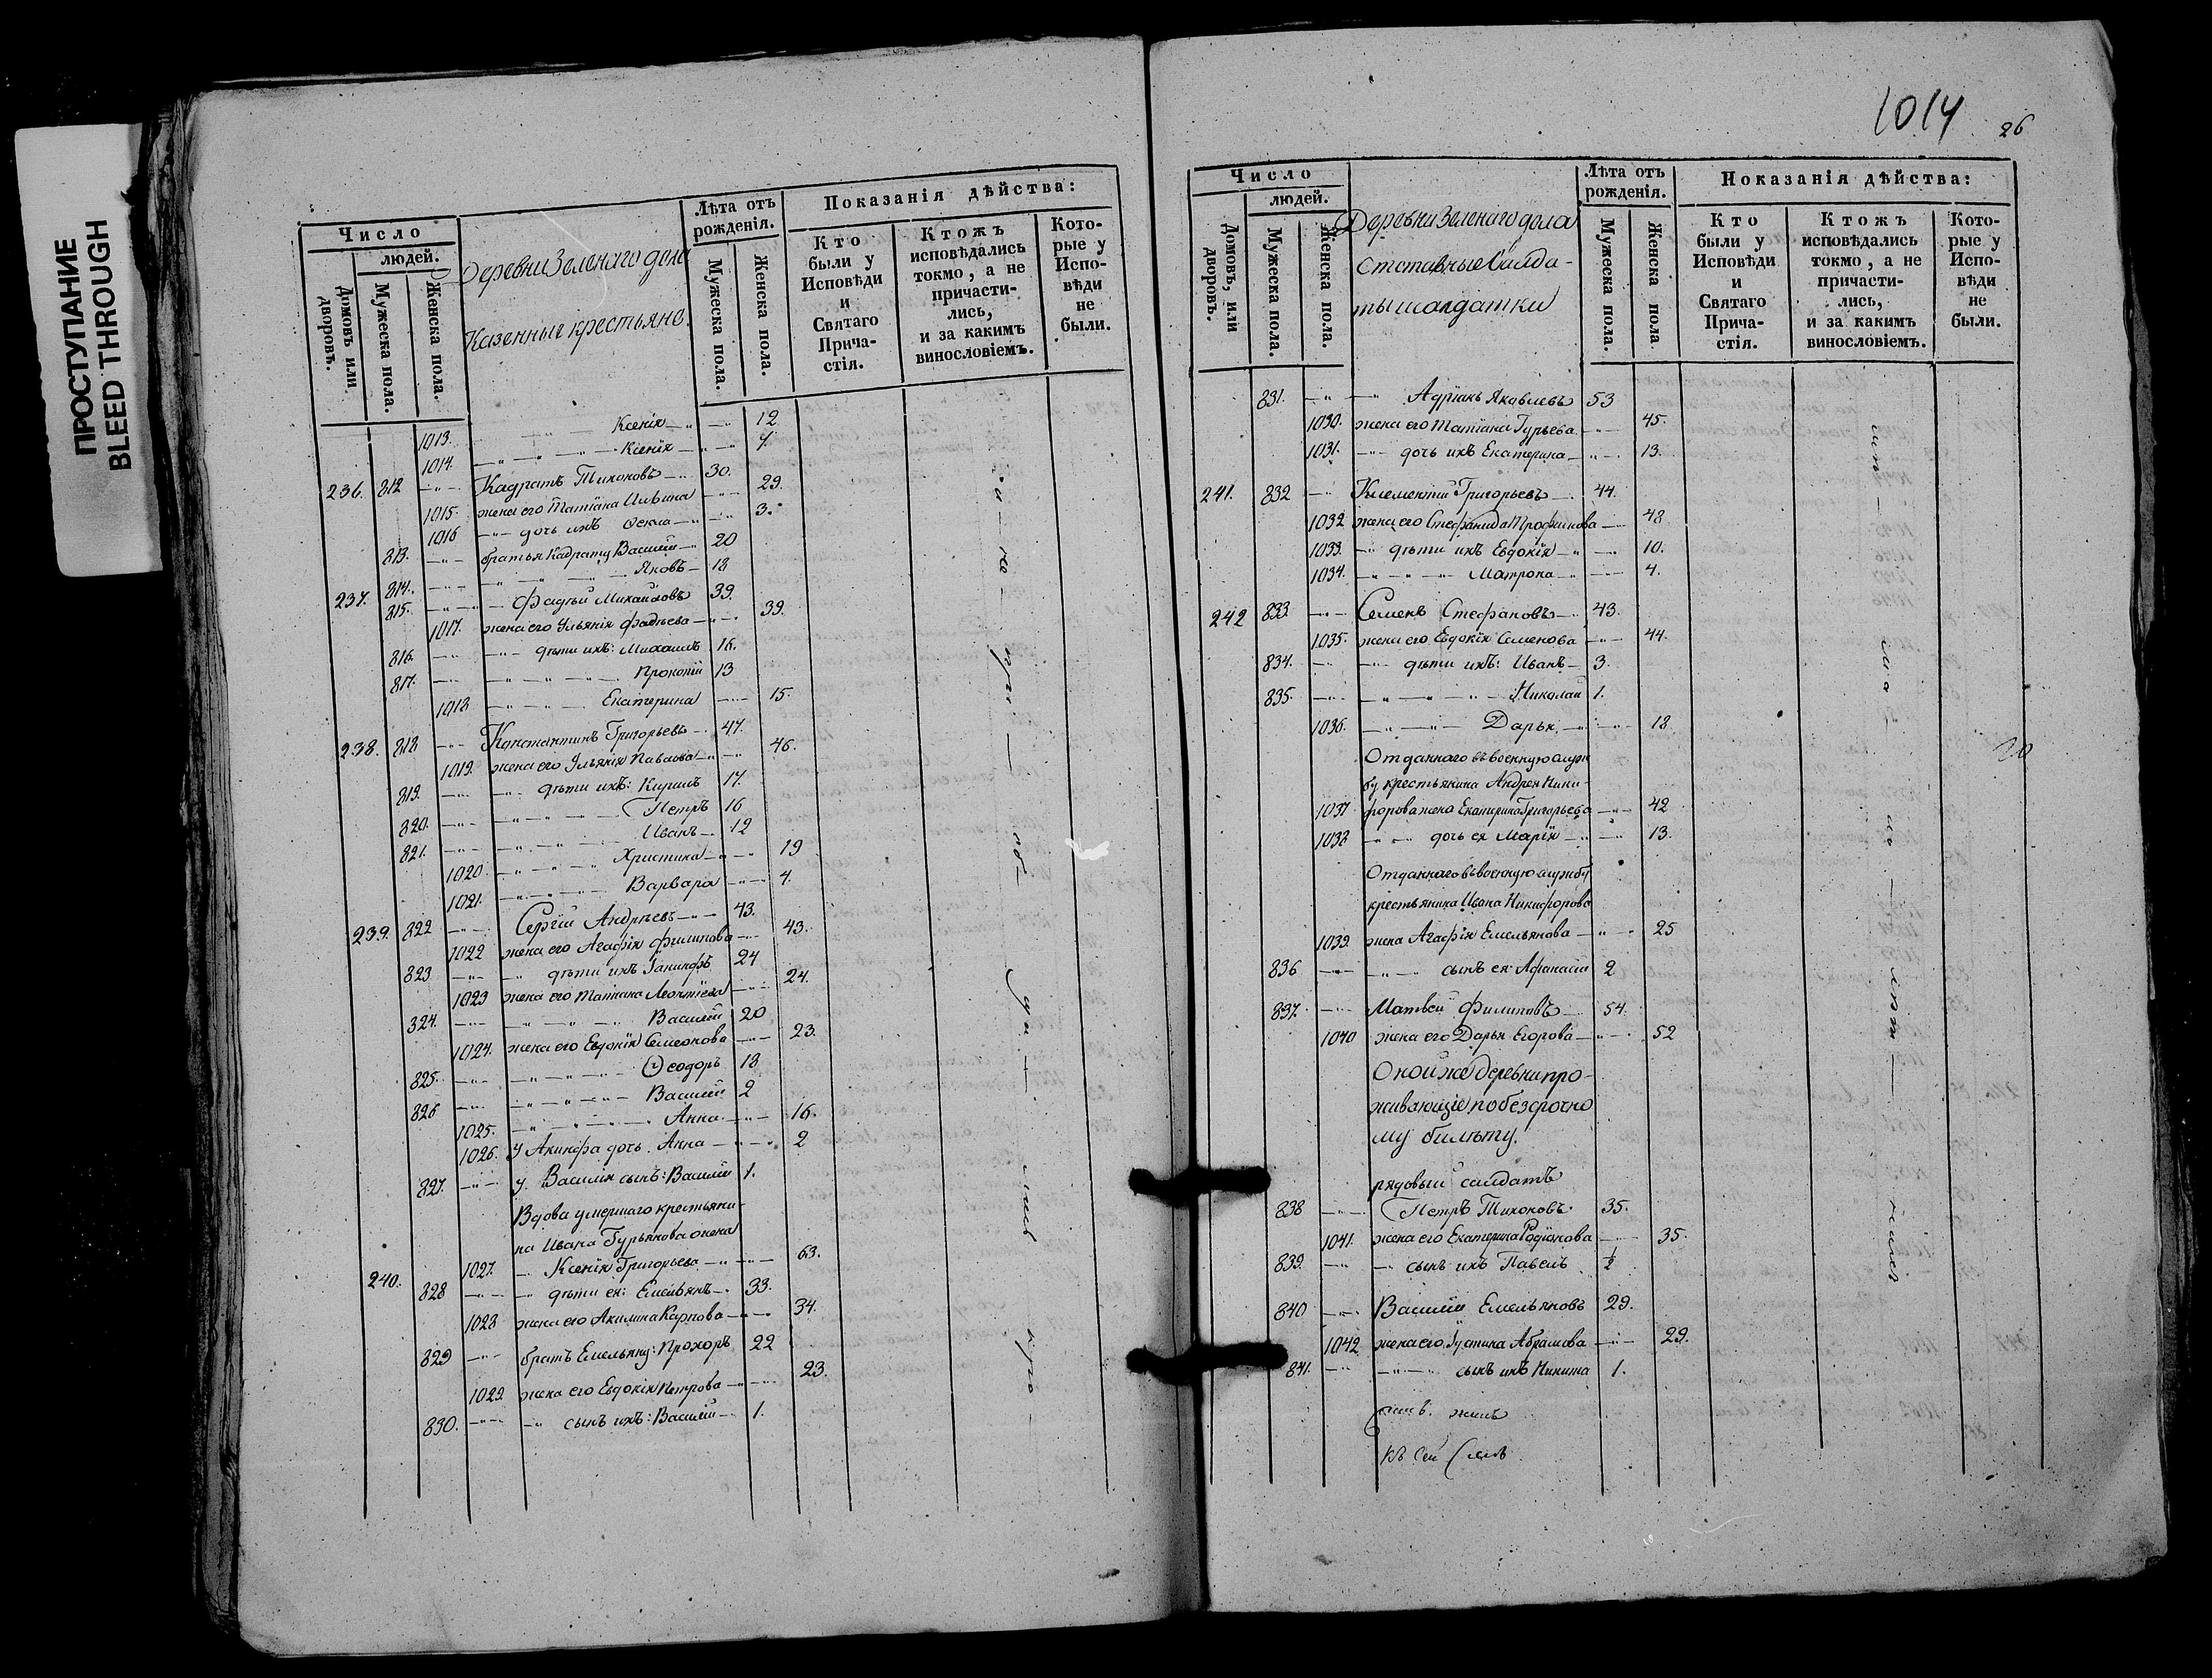 ПРОСТУПАНИЕ
BLEED THROUGH
Число
людей.
Домовъ или дворовъ.
Мужеска пола.
Женска пола.
Деревни Зеленаго дола
Казенные крестьяне.
Лѣта отъ рожденія.
Мужеска пола.
Женска пола.
Показанія дѣйства:
Кто были у Исповѣди и Святаго Прича-стія.
Ктожъ исповѣдались токмо, а не причасти-лись, и за какимъ винословіемъ.
Кото-рые у Испо-вѣди не были.
1013. Ксенія 12
1014. Ксенія 7.
236. 812 Кадратъ Тихоновъ 30.
1015. жена его Татіана Ильина 29.
1016 дочь ихъ Ѳекла 3.
813. братья Кадрату Василій 20
814. Яковъ 18
237. 815. Фадѣй Михайловъ 39.
1017. жена его Ульянія Фадѣева 39.
816. дѣти ихъ: Михаилъ 16.
817. Прокопій 13
1018 Екатерина 15.
238. 818 Константинъ Григорьевъ 47.
1019. жена его Ульянія Павлова 46.
819. дѣти ихъ: Кирилъ 17.
820. Петръ 16
821. Иванъ 12
1020. Христина 19
1021. Варвара 4.
239. 822 Сергій Андрѣевъ 43.
1022 жена его Агафія Филипова 43.
823 дѣти ихъ 24
1023 жена его Татіана Леонтіева 24.
324. Василій 20
1024. жена его Евдокія Семеонова 23.
825. Ѳеодоръ 18
826 Василій 2
1025. Анна 16.
1026. У Акинфа дочь Анна 2
827. У Василія сынъ: Василій 1.
Вдова умершаго крестьяни-
на Ивана Гурьянова жена
1027. Ксенія Григорьева 63.
240. 828 дѣти ея: Емельянъ 33.
1028 жена его Акилина Карпова 34.
829 братъ Емельяну: Прохоръ 22
1029. жена его Евдокія Петрова 23.
830. сынъ ихъ: Василій 1.
1014
26
Число
людей.
Домовъ, или дворовъ.
Мужеска пола.
Женска пола.
Деревни Зеленаго дола
Отставные Салда-
ты и солдатки
Лѣта отъ рожденія.
Мужеска пола.
Женска пола
Показанія дѣйства:
Кто были у Исповѣди и Святаго Прича-стія.
Ктожъ исповѣдались токмо, а не причасти-лись, и за какимъ винословіемъ.
Кото-рые у Испо-вѣди не были.
831. Адріанъ Яковлевъ 53
1030. жена его Татіана Гурьева 45.
1031. дочь ихъ Екатерина 13.
241. 832 Климентій Григорьевъ 44.
1032 жена его Стефанида Трофимова 48
1033. дѣти ихъ Евдокія 10.
1034. Матрона 4.
242 833 Семенъ Стефановъ 43.
1035. жена его Евдокія Семенова 44.
834. дѣти ихъ: Иванъ 3.
835. Николай 1.
1036. Дарья 18
Отданнаго въ военную служ
бу крестьянина Андрея Ники-
1037 форова жена Екатерина Григорьева 42
1038 дочь ея Марія 13.
Отданнаго въ военную службу
крестьянина Ивана Никифорова
1039. жена Агафія Емельянова 25
836 сынъ ея Афанасій 2
837. Матвей Филиповъ 54.
1040 жена его Дарья Егорова 52
Оной же деревни про-
живающіе по безсрочно
му билѣту.
рядовый салдатъ
838 Петръ Тихоновъ 35.
1041. жена его Екатерина Родіонова 35.
839. сынъ ихъ Павелъ ½
840 Василій Емельяновъ 29.
1042 жена его Іустина Абрамова 29.
841. сынъ ихъ Никита 1.